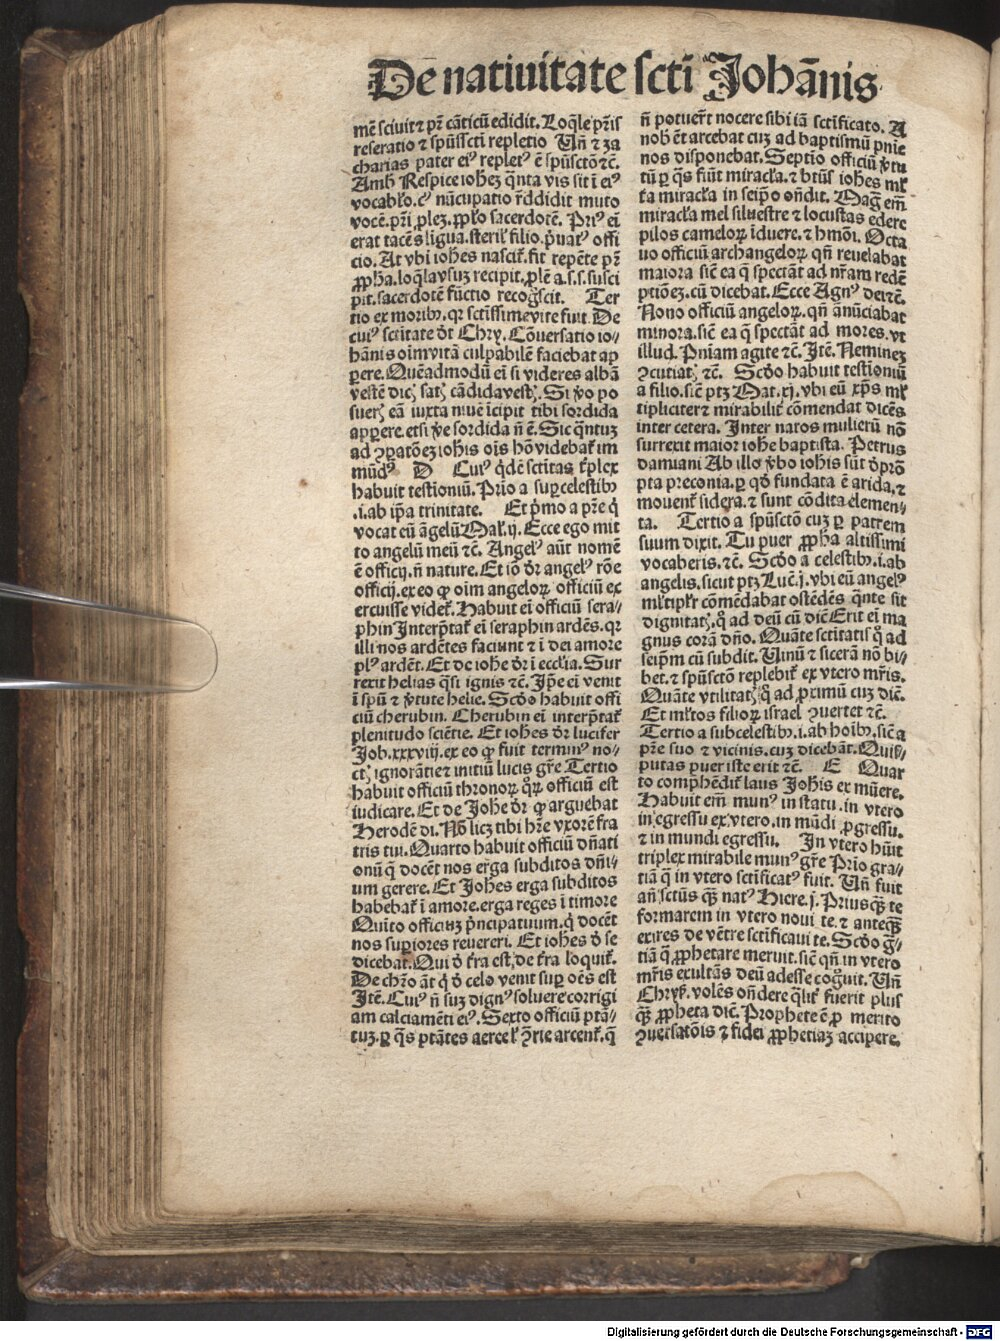 De natiuitate scti Johānis
mē sciuit ⁊ pr̄ cāticū edidit. Loq̄le pr̄is
reseratio ⁊ spūsscti repletio Vn̄ ⁊ za
charias pater ei⁹ replet⁹ ē spūsctō ⁊c̄.
Amb̄ Respice iohez q̄nta vis sit ī ei⁹
vocabl'o. c⁹ nūcupatio r̄ddidit muto
vocē. pr̄i ꝓlez. ꝓpl'o sacerdotē. Pri⁹ ei
erat tacēs līgua. steril' filio. p̄uat⁹ offi
cio. At vbi iohes nascit̄. fit repēte pr̄
ꝓph̄a. loq̄lā vsuz recipit. ꝓlē a.s.s. susci
pit. sacerdotē fūctio recog̊scit. Ter
tio ex morib⁹. qr sctissime vite fuit. De
cui⁹ sctitate d̄t Chry. Cōuersatio io/
hānis oīm vitā culpabilē faciebat ap
ꝑere. Quēadmodū ei si videres albā
vestē dicꝭ satꝭ cādida vestꝭ. Si v̄o po
suerꝭ eā iuxta niuē īcipit tibi sordida
apꝑere. etsi v̄e sordida n̄ ē. Sic q̄ntuz
ad ꝯꝑatōez iohis oīs hō videbat̄ im
mūd⁹ D Cui⁹ q̄dē sctitas t̄plex
habuit testīoniū. Prīo a suꝑcelestib⁹
.i. ab ip̄a trinitate. Et p̄mo a pr̄e q̇
vocat eū āgelū Mal'. ij. Ecce ego mit
to angelū meū ⁊c̄. Angel⁹ aūt nomē
ē officij. n̄ nature. Et iō d̄r angel⁹ rōe
officij. ex eo ꝙ oīm angeloꝝ officiū ex
ercuisse videt̄. Habuit ei officiū sera/
phin Interp̄tat̄ ei seraphin ardēs. qr
illi nos ardētes faciunt ⁊ ī dei amore
pl⁹ ardēt. Et de iohe d̄r ī eccl'ia. Sur
rexit helias q̄si ignis ⁊c̄. Ip̄e ei venit
ī spū ⁊ v̄tute helie. Scdo habuit offi
ciū cherubin. Cherubin ei interp̄tat̄
plenitudo sciētie. Et iohes d̄r lucifer
Job. xxxviij. ex eo ꝙ fuit termin⁹ no/
ctꝭ ignorātie ⁊ initiū lucis gr̄e Tertio
habuit officiū thronoꝝ qꝝ officiū est
iudicare. Et de Johe d̄r ꝙ arguebat
Herodē di. Nō licz tibi hr̄e vxorē fra
tris tui. Quarto habuit officiū dn̄ati
onū q̇ docēt nos erga subditos dn̄i/
um gerere. Et Johes erga subditos
habebat̄ ī amore. erga reges ī timore
Quīto officiuz p̄ncipatuum. q̇ docēt
nos suꝑiores reuereri. Et iohes d̄ se
dicebat. Qui d̄ t̄ra est, de t̄ra loquit̄.
De chr̄o āt q̇ d̄ celo venit suꝑ oēs est
Itē. Cui⁹ n̄ suz dign⁹ soluere corrigi
am calciamēti ei⁹. Sexto officiū ptā/
tuz. ꝑ q̄s ptātes aereel' ꝯ̄rie arcent̄. q̄
n̄ potuer̄t nocere sibi iā sctificato. A
nob̄ ēt arcebat cuz ad baptismū pnīe
nos disponebat. Septīo officiū v̄tu
tū ꝑ q̄s fiūt miracl'a. ⁊ btūs iohes ml'
ta miracl'a in seip̄o on̄dit. Maḡ em̄
miracl'a mel siluestre ⁊ locustas edere
pilos cameloꝝ īduere. ⁊ hmōi. Octa
uo officiū archangeloꝝ. qn̄ reuelabat
maiora sic̄ ea q̄ spectāt ad nr̄am redē
ptiōez. cū dicebat. Ecce Agn⁹ dei ⁊c̄.
Nono officiū angeloꝝ. qn̄ anūciabat
minora. sic̄ ea q̄ spectāt ad mores. vt
illud. Pniam agite ⁊c̄. Itē. Neminez
ꝯcutiatꝭ ⁊c̄. Scdo habuit testīoniū
a filio. sic̄ ptz Mat. xj. vbi eū xp̄s ml'
tipliciter ⁊ mirabilit̄ cōmendat dicēs
inter cetera. Inter natos mulierū nō
surrexit maior iohe baptista. Petrus
damiani Ab illo v̄bo iohis sūt d̄prō
pta preconia. ꝑ qd̄ fundata ē arida. ⁊
mouent̄ sidera. ⁊ sunt cōdita elemen/
ta. Tertio a spūsctō cuz ꝑ patrem
suum dixit. Tu puer ꝓph̄a altissimi
vocaberis. ⁊c̄. Scdo a celestib⁹. i. ab
angelis. sicut ptz Luc̄. j. vbi eū angel⁹
ml'tipl'r cōmēdabat ostēdēs q̄nte sit
dignitatꝭ. q̊ ad deū cū dic̄ Erit ei ma
gnus corā dn̄o. Quāte sctitatis q̊ ad
seip̄m cū subdit. Vinū ⁊ sicerā nō bi/
bet. ⁊ spūsctō replebit̄ ex vtero mr̄is.
Quāte vtilitatꝭ q̊ ad ꝓximū cuz dic̄.
Et ml'tos filioꝝ israel ꝯuertet ⁊c̄.
Tertio a subcelestib⁹. i. ab hoīb⁹. sic̄ a
pr̄e suo ⁊ vicinis. cuz dicebāt. Quis/
putas puer iste erit ⁊c̄. E Quar
to comp̄hēdit̄ laus Johis ex mūere.
Habuit em̄ mun⁹ in statu. in vtero
in egressu ex vtero. in mūdi ꝓgressu.
⁊ in mundi egressu. In vtero hūit
triplex mirabile mun⁹ gr̄e Prīo gra/
tiā q̄ in vtero sctificat⁹ fuit. Vn̄ fuit
an̄ sctūs q̄ꝫ nat⁹ Hiere. j. Priusq̄ꝫ te
formarem in vtero noui te. ⁊ anteq̄ꝫ
exires de vētre sctificaui te. Scdo ḡ/
tiā q̄ ꝓphetare meruit. sic̄ qn̄ in vtero
mr̄is exultās deū adesse cog̊uit. Vn̄
Chrys̄. volēs on̄dere q̄lit̄ fuerit plus
q̄ꝫ ꝓpheta dic̄. Prophete ē ꝓ merito
ꝯuersatōis ⁊ fidei ꝓphetiaz accipere.
Digitalisierung gefördert durch die Deutsche Forschungsgemeinschaft - DFG